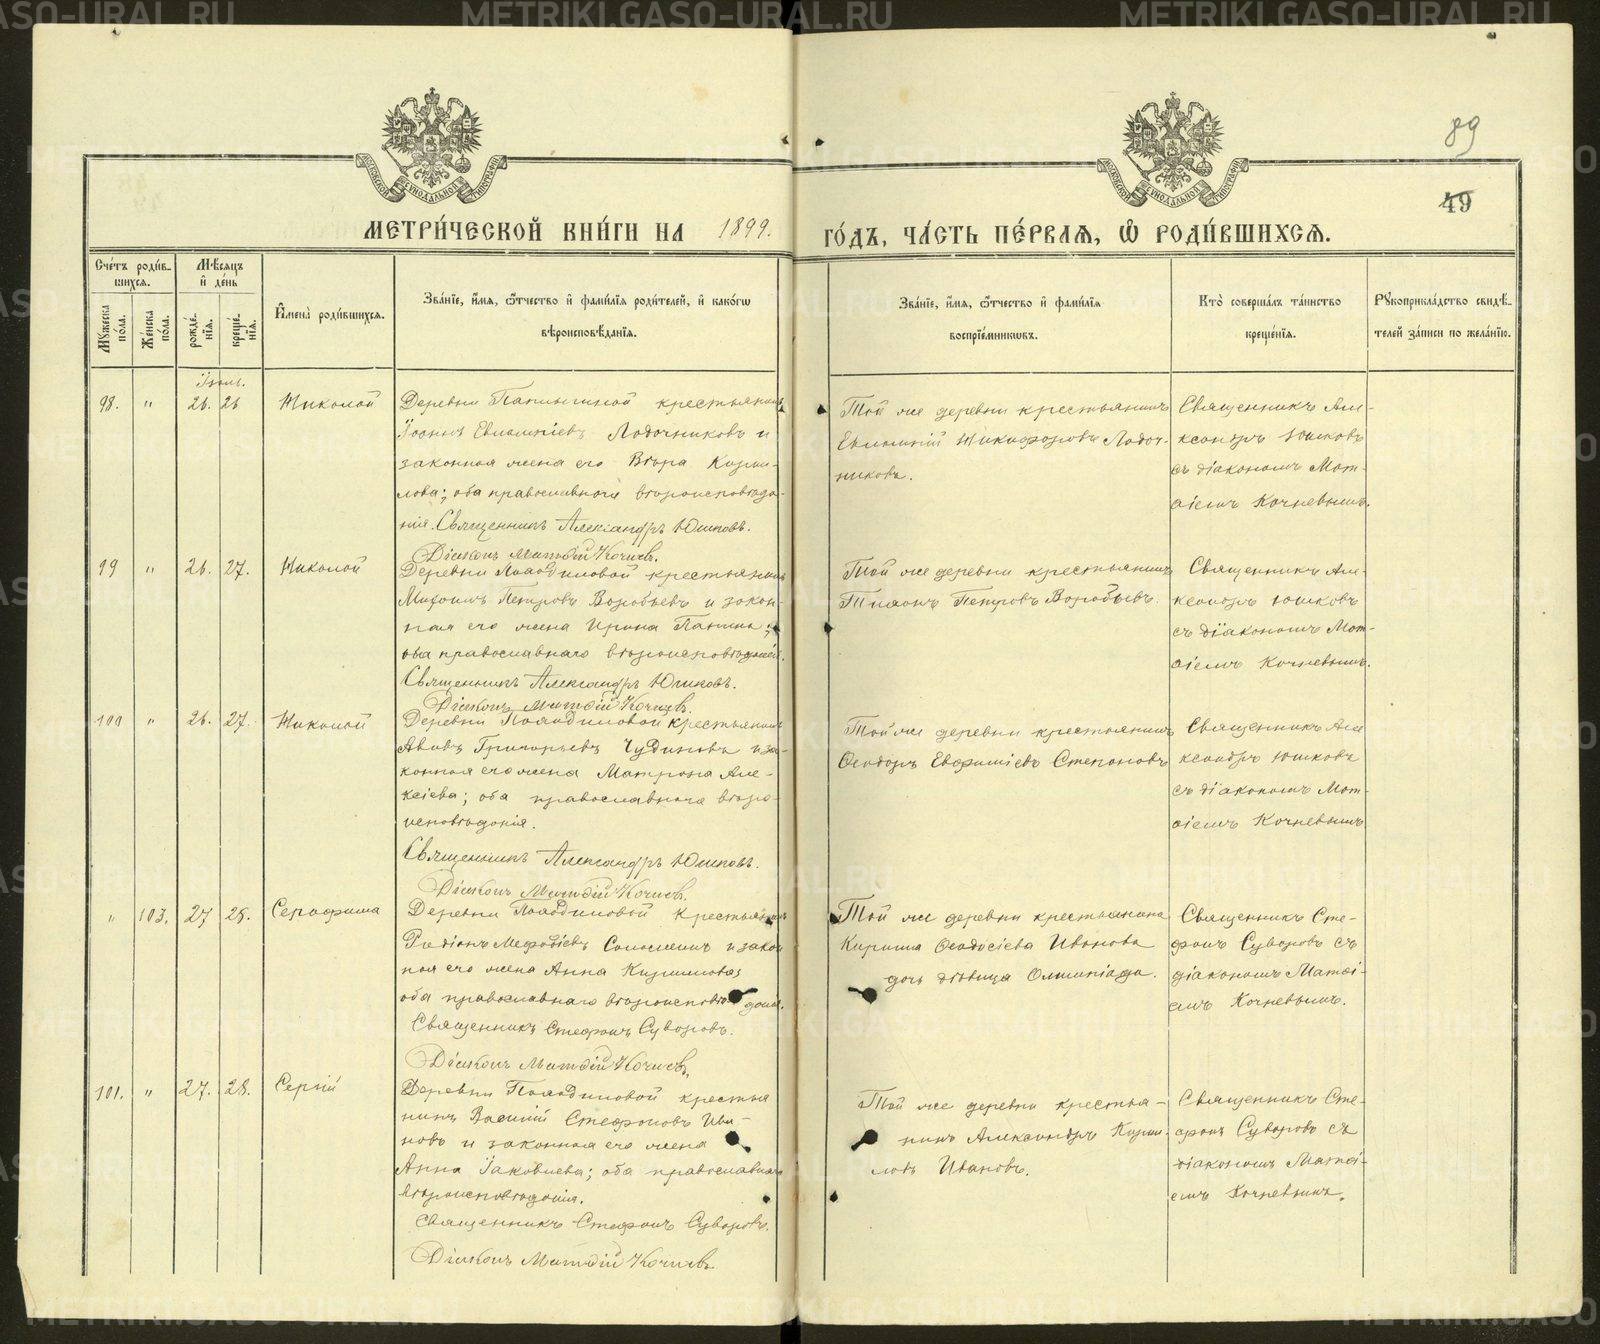 89
49
МЕТРИ́ЧЕСКОЙ КНИ́ГИ НА 1899. ГО́ДЪ, ЧА́СТЬ ПЕ́РВАЯ, Ѡ РОДИ́ВШИХСЯ.
МОСКОВСКОЙ СѴНОДАЛЬНОЙ ТИПОГРАФІИ
МОСКОВСКОЙ СѴНОДАЛЬНОЙ ТИПОГРАФІИ
Сче́тъ роди́в-
шихся.
Му́жеска
по́ла.
Же́нска
по́ла.
Мѣ́сяцъ
и҆ де́нь
рожде́-
нїя.
креще́-
нїя.
И҆мена̀ роди́вшихся.
Зва́нїе, и҆́мя, ѻ҆́тчество и҆ фами́лїя роди́телей, и҆ како́гѡ
вѣроисповѣ́данїя.
Зва́нїе, и҆́мя, ѻ҆́тчество и҆ фами́лїя
воспрїе́мникѡвъ.
Кто̀ соверша́лъ та́инство
креще́нїя.
Рꙋкоприкла́дство свидѣ́-
телей за́писи по жела́нїю.
Іюль.
98. " 26. 26 Николай
Деревни Паньшиной крестьянинъ
Іоаннъ Евлампіевъ Лодочниковъ и
законная жена его Вѣра Кирил-
лова; оба православнаго вѣроисповѣда-
нія. Священникъ Александръ Юшковъ.
Діаконъ Матѳій Кочневъ.
Той же деревни крестьянинъ
Евлампій Никифоровъ Лодоч-
никовъ.
Священникъ Але-
ксандръ Юшковъ
съ діакономъ Мат-
ѳіемъ Кочневымъ.
99 " 26. 27. Николай
крестьянинъ
Михаилъ Петровъ Воробьевъ и закон-
ная его жена Ирина
оба православнаго вѣроисповѣданія.
Священникъ Александръ Юшковъ.
Діаконъ Матѳій Кочневъ.
Той же деревни крестьянинъ
Тихонъ Петровъ Воробьевъ.
Священникъ Але-
ксандръ Юшковъ
съ діакономъ Мат-
ѳіемъ Кочневымъ.
100 " 26. 27. Николай
крестьянинъ
Григорьевъ Чудиновъ и за-
конная его жена Матрона Але-
ксіева; оба православнаго вѣро-
исповѣданія.
Священникъ Александръ Юшковъ.
Діаконъ Матѳій Кочневъ.
Той же деревни крестьянинъ
Ѳеодоръ Евфиміевъ Степановъ
Священникъ Але
ксандръ Юшковъ
съ діакономъ Мат-
ѳіемъ Кочневымъ
" 103. 27 28. Серафима
крестьянинъ
Родіонъ Меѳодіевъ и закон
ная его жена Анна Кириллова;
оба православнаго вѣроисповѣданія.
Священникъ Стефанъ Суворовъ.
Діаконъ Матѳій Кочневъ.
Той же деревни крестьянина
Кирилла Ѳеодосіева Иванова
дочь дѣвица Олимпіада.
Священникъ Сте-
фанъ Суворовъ съ
діакономъ Матѳі-
емъ Кочневымъ.
101. " 27. 28. Сергій
крестья
нинъ Василій Стефановъ Ива-
новъ и законная его жена
Анна Іаковлева; оба православнаго
вѣроисповѣданія.
Священникъ Стефанъ Суворовъ.
Діаконъ Матѳій Кочневъ.
Той же деревни крестья-
нинъ Александръ Кирил-
ловъ Ивановъ.
Священникъ Сте-
фанъ Суворовъ съ
діакономъ Матѳі-
емъ Кочневымъ.
METRIKI.GASO-URAL.RU